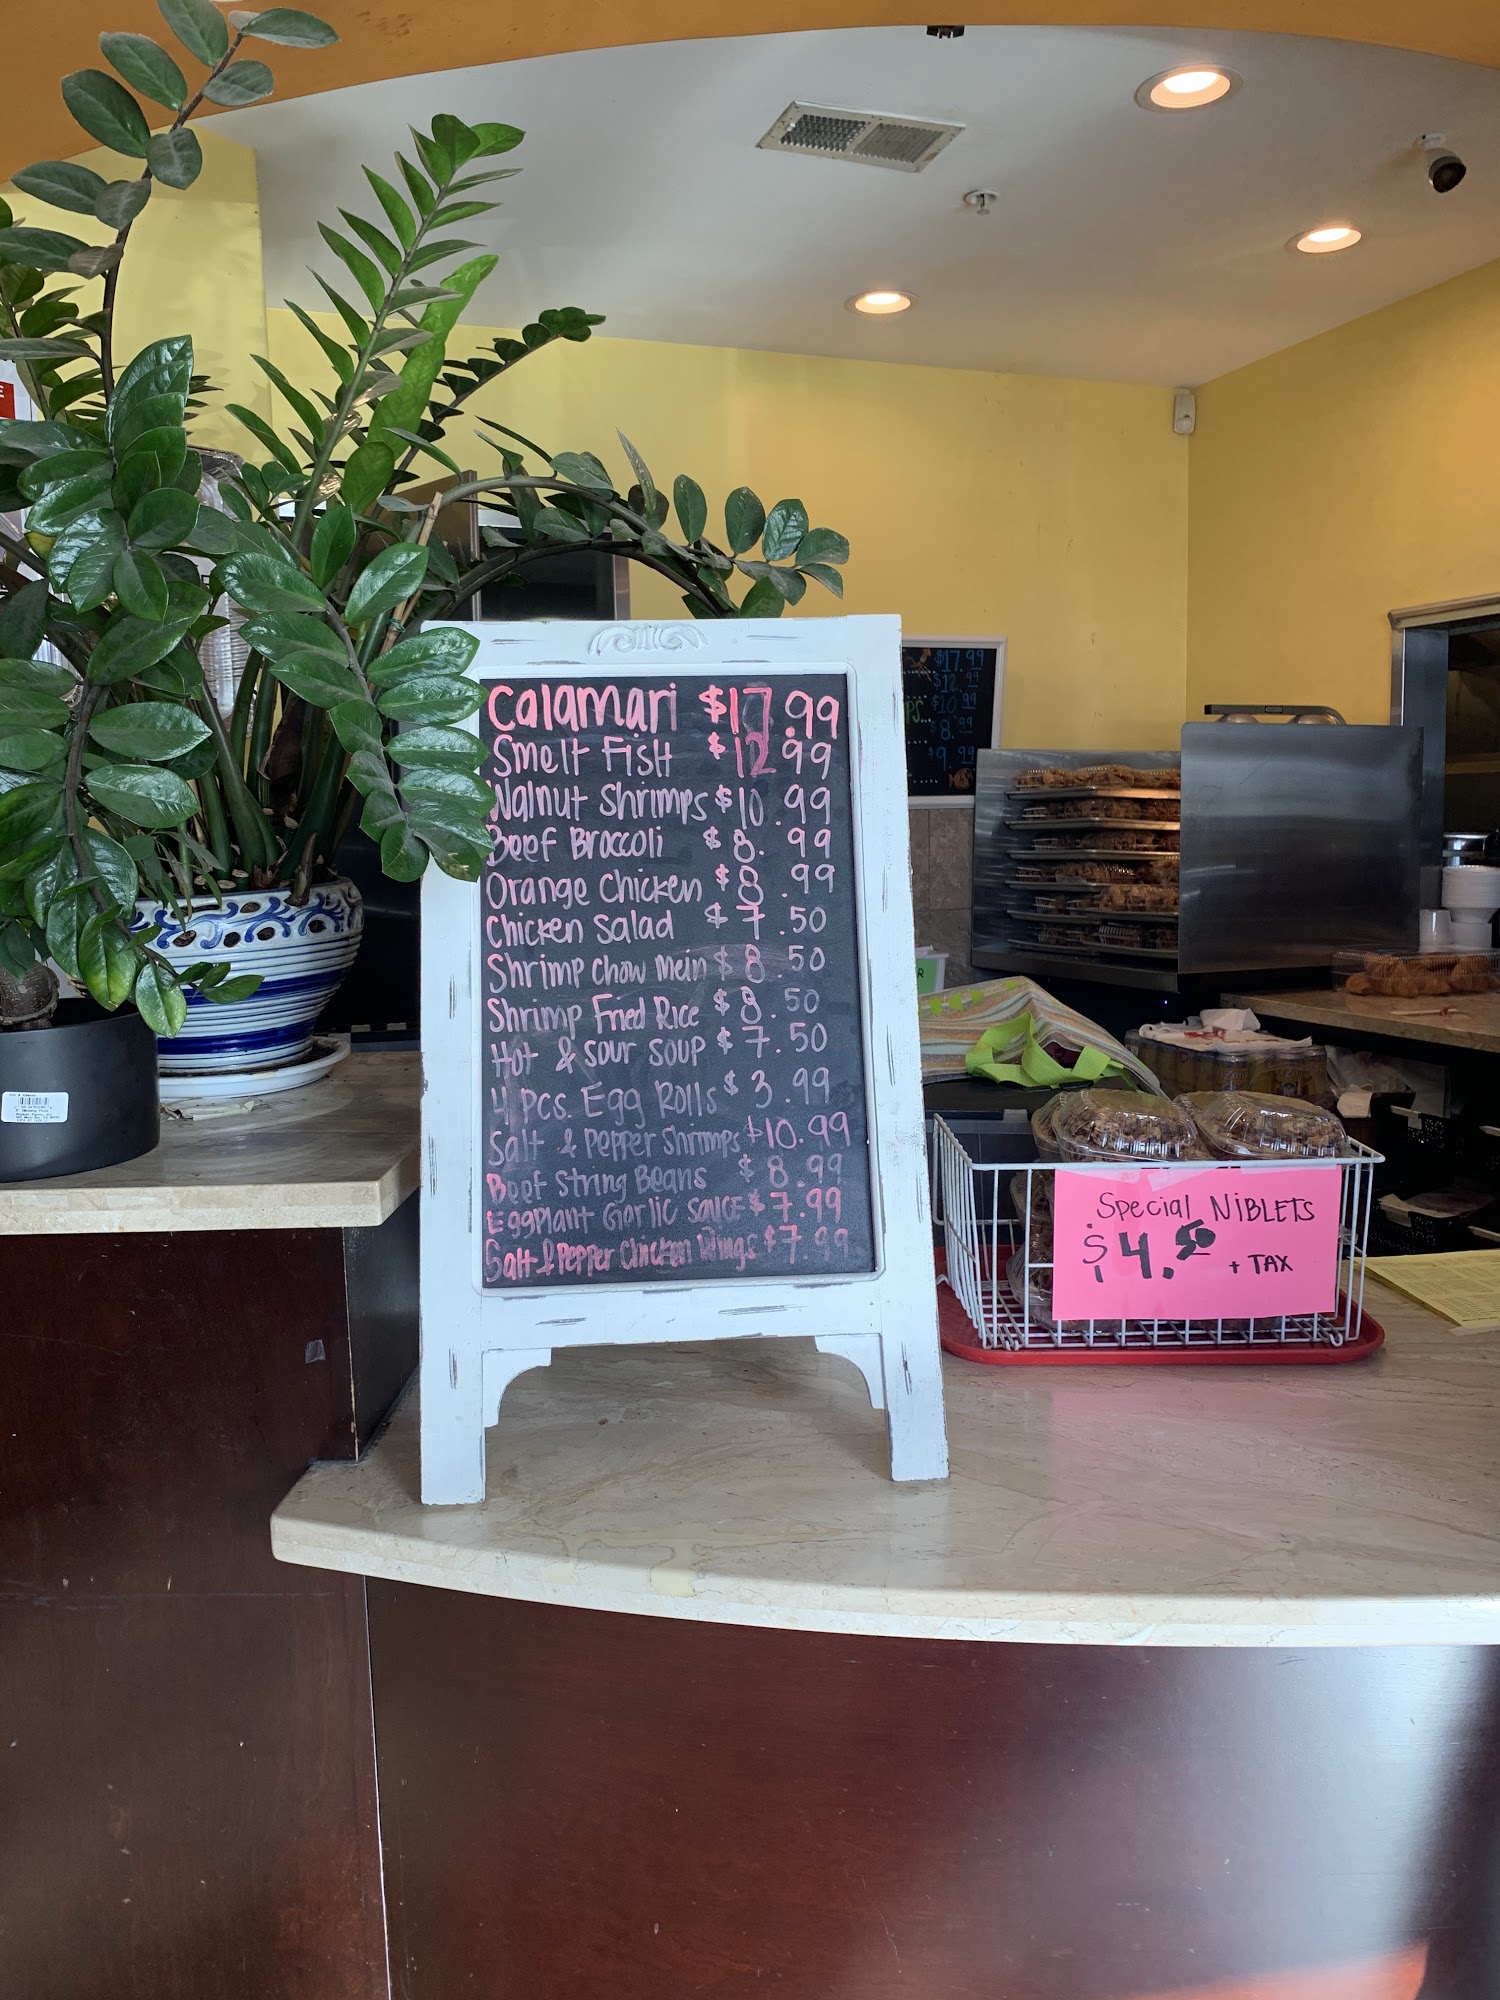 Calamari $17.99
Smelt Fish $12.99
Walnut Shrimps $10.99
Beef Broccoli $8.99
Orange Chicken $8.99
Chicken Salad $7.50
Shrimp Chow Mein $8.50
Shrimp Fried Rice $8.50
Hot & Sour Soup $7.50
4 Pcs. Egg Rolls $3.99
Salt & Pepper Shrimps $10.99
Beef String Beans $8.99
Eggplant Garlic Sauce $7.99
Salt & Pepper Chicken Wings $7.99
$17.99
$12.99
$10.99
$8.99
$9.99
Special NIBLETS
$4.50 + TAX